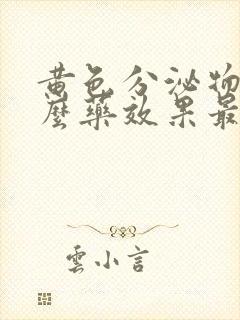 黄色分泌物
麼藥效果最
雲小言